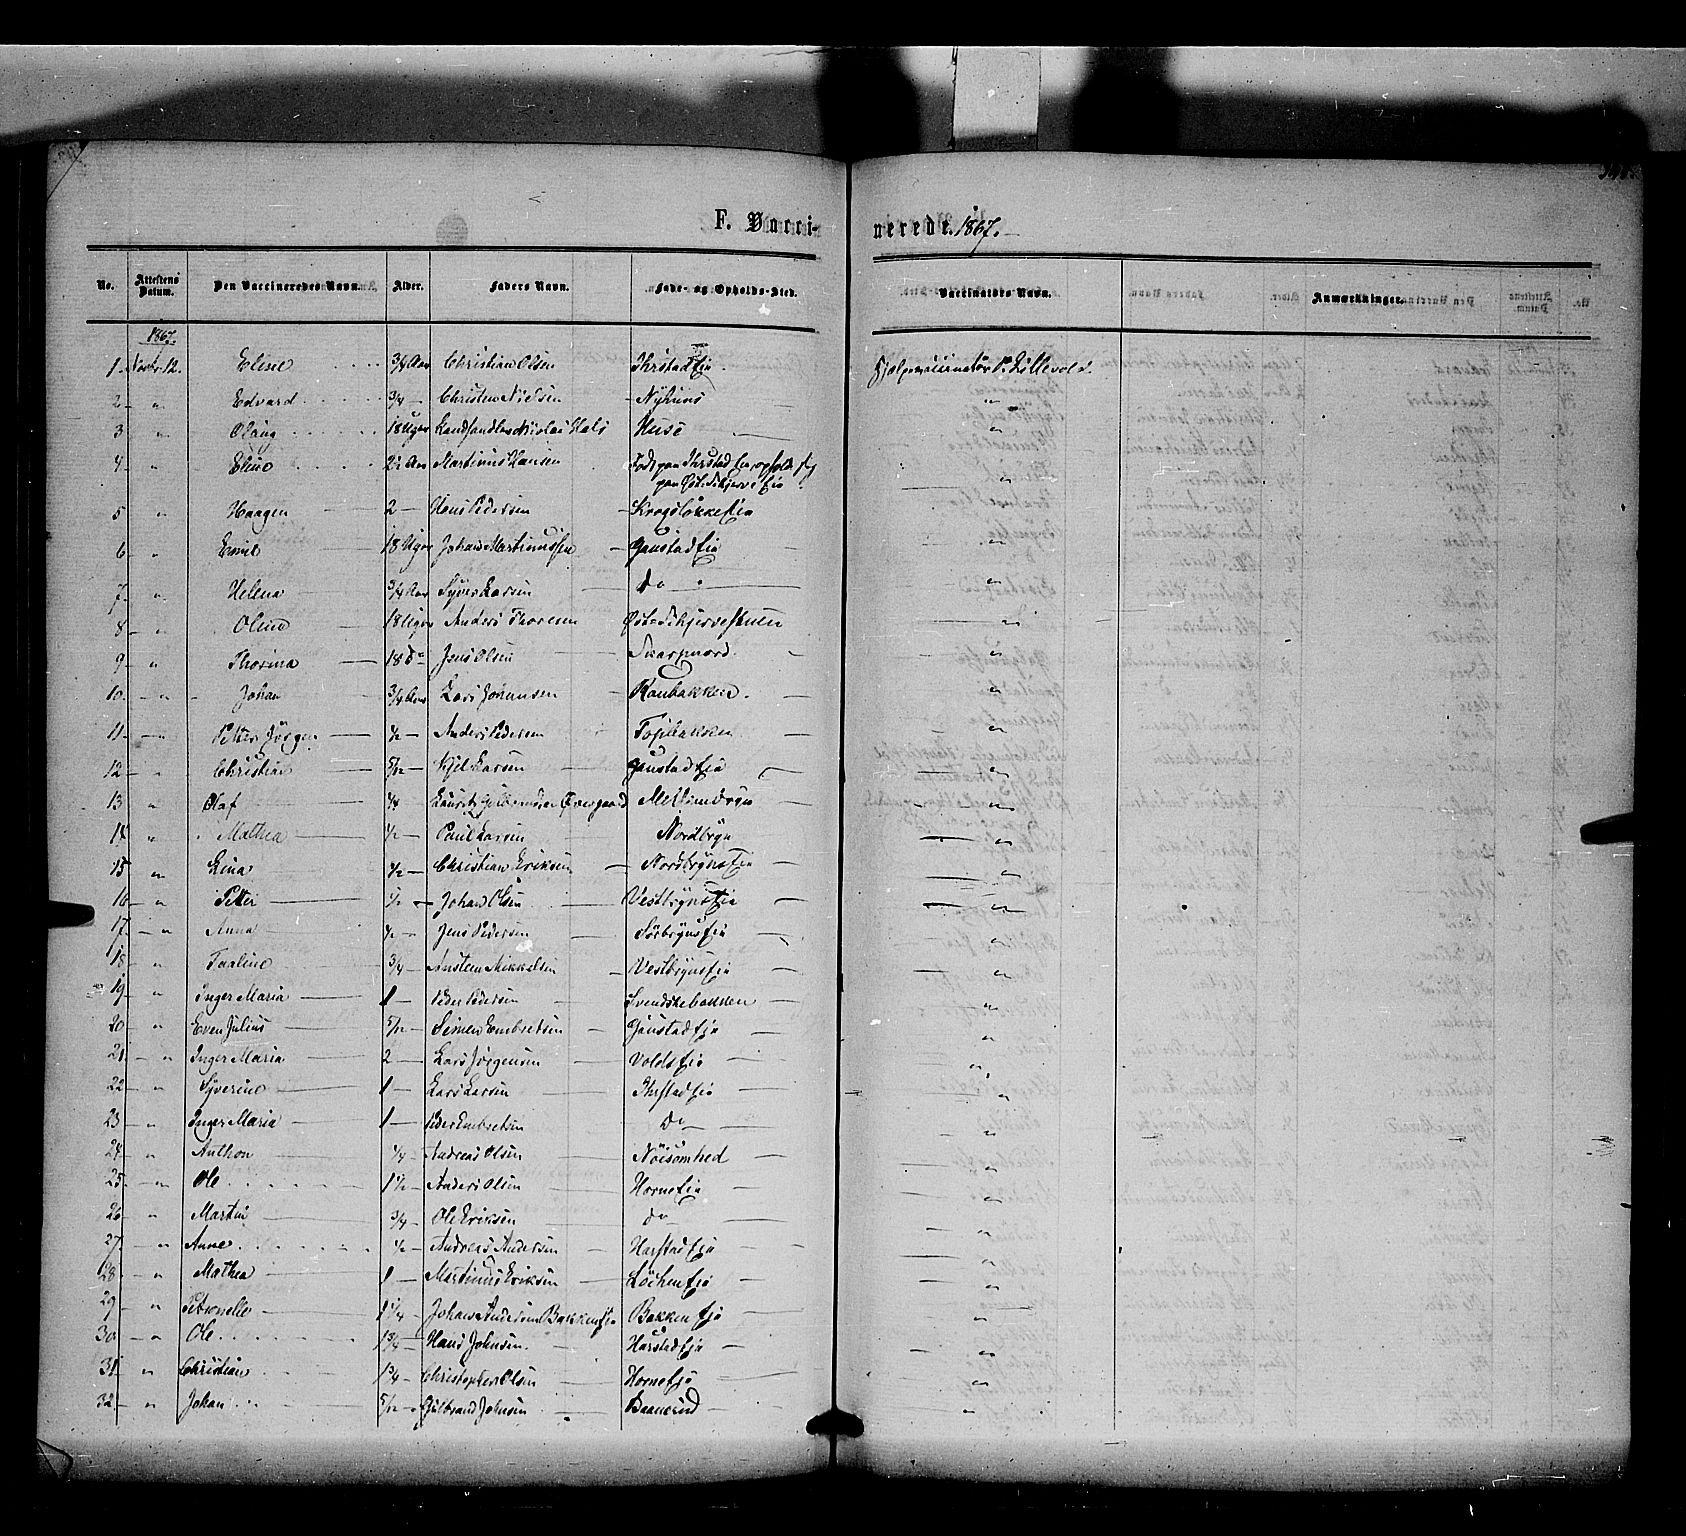 F. Vacci- nerede. 1867.
No. Attestens Datum. Den Vaccineredes Navn. Alder. Faders Navn. Føde- og Opholds-Sted. Vaccinators Navn. Anmærkninger.
1867.
1. Novbr. 12. Eline 3/4 Aar Christian Olsen Ihrstadeie Hjælpevaccinatør P. Lillevold.
2 " Edvard 3/4 Christen Nielsen "
3 " Olaug 18 Uger Landhandler Nicolai Hals Huse "
4 " Eline 2 1/2 Aar Martinus Hansen Født paa Ihrstad Eie, opholder sig
paa Østre Skjerve Eie "
5 " Haagen 2 Hans Pedersen Krogsløkkeeie "
6 " Emil 18 Uger Johan Martinussen Gaustadeie "
7 " Helena 3/4 Aar Syver Larsen Do "
8 " Oline 18 Uger Anders Thoresen Øst-Skjervestuen "
9 " Thorina 18 Do Jens Olsen Skarpnord "
10 " Johan 3/4 Aar Lars Johansen Raubakken "
11 " Petter Jørgen 1/2 Anders Pedersen "
12 " Christian 5/12 Kjel Larsen Gaustadeie "
13 " Olaf 1/4 Lauritz Gulbrandsen Overgaard Mellembryn "
14 " Mathea 1/2 Paul Larsen Nordbryn "
15 " Lina 1/2 Christian Eriksen Nordbrynseie "
16 " Petter 1/2 Johan Olsen Vestbrynseie "
17 " Anna 1/2 Jens Pedersen Sørbrynseie "
18 " 3/4 Amsten Mikkelsen Vestbrynseie "
19 " Inger Maria 1 Peder Pedersen Svenskebakken "
20 " Even Julius 5/12 Simen Embretsen Gaustadeie "
21 " Inger Maria 2 Lars Jørgensen Voldseie "
22 " Syverine 1 Lars Larsen Ihrstadeie "
23 " Inger Maria 1 Peder Embretsen Do "
24 " Anthon 1/4 Andreas Olsen Nøisomhed "
25 " Ole 1 1/2 Anders Olsen Horneeie "
26 " Martin 3/4 Ole Eriksen Do "
27 " Anne 1/2 Andreas Andersen Harstadeie "
28 " Mathea 1 Martinus Eriksen Løcheneie "
29 " Petronelle 1 1/4 Johan Andersen Bakkeneie Bakkeneie "
30 " Ole 1 3/4 Hans Johnsen Harstadeie "
31 " Christian 1 3/4 Christopher Olsen Horneeie "
32 " Johan 5/12 Gulbrand Johnsen Baanerud "